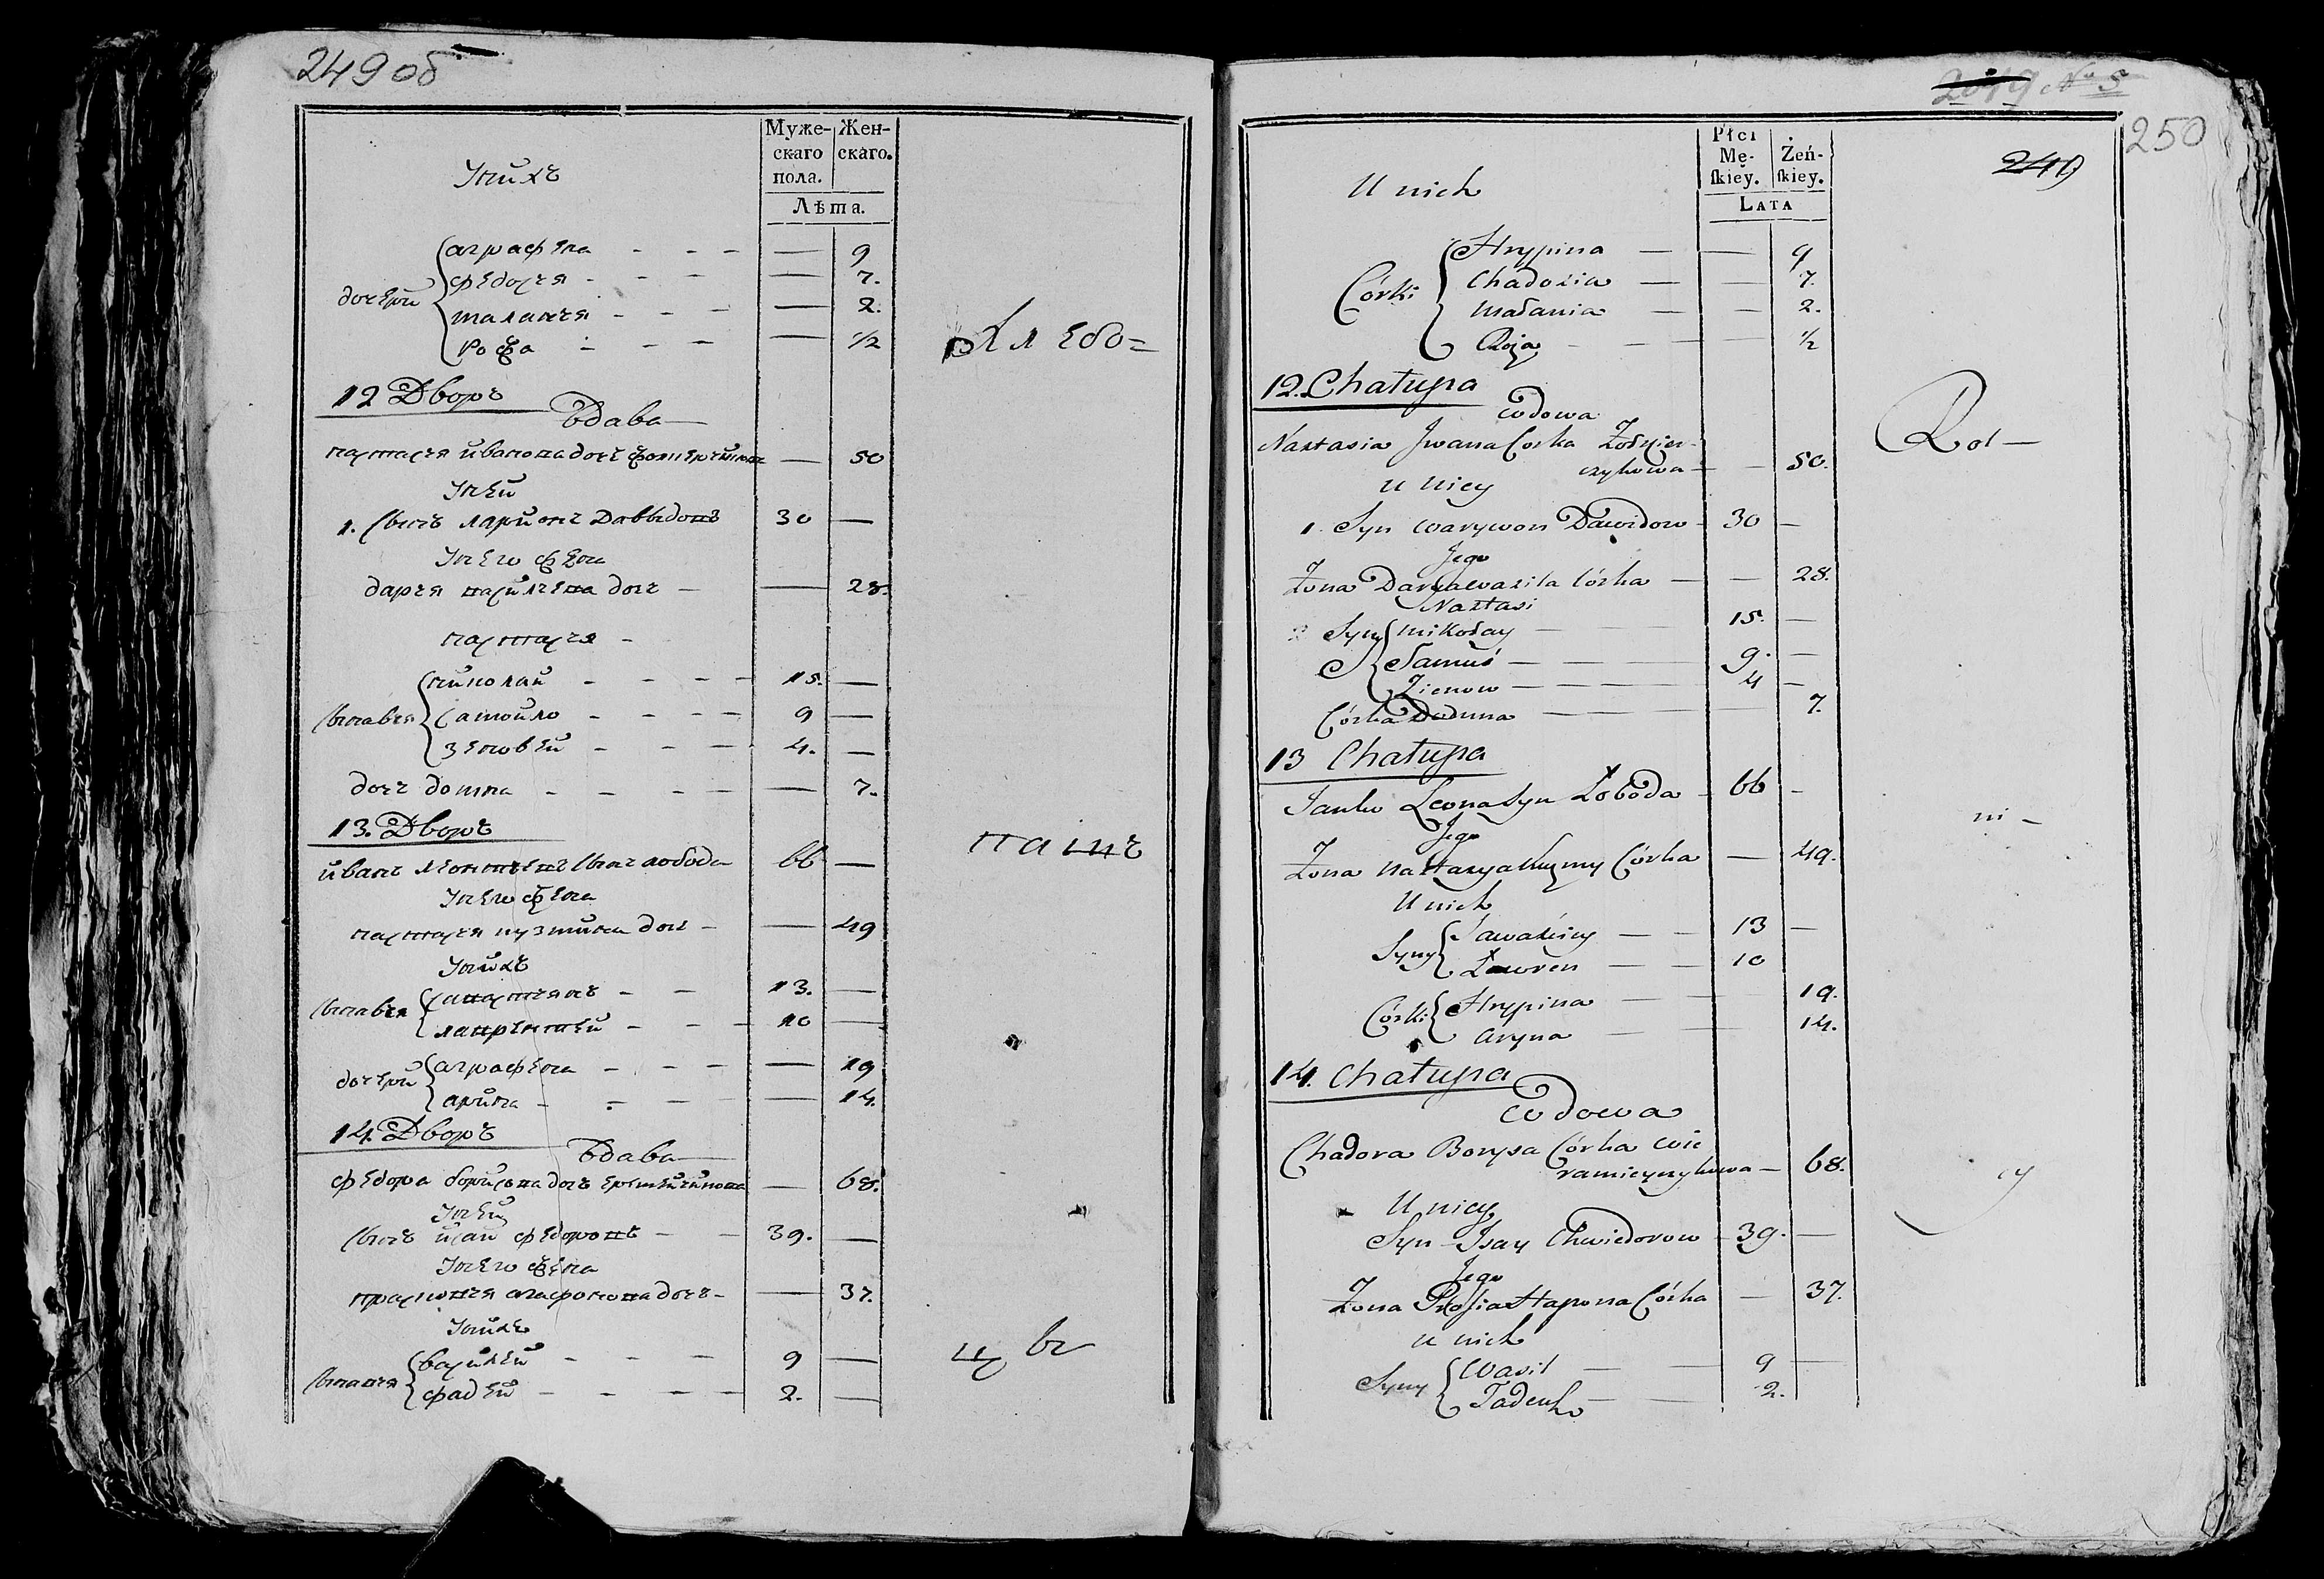 249 об
Муже-
скаго
пола.
Жен-
скаго.
Лѣта.
Унихъ
дочери
аграфена - - - — 9
федосья - - - — 7.
маланья - - - — 2.
рофа - - - — 1/2
Хлебо=
12 Дворъ
Вдава
настасья ивановна дочь — 50
Уней
1. Сынъ ларионъ Давыдовъ 30 —
Унего жена
дарья васильева дочь - — 28.
настасья -
Сыновья
николай - - - - 15. —
самойло - - - - 9 —
зеновей - - - 4. —
дочь домна - - - - — 7.
13. Дворъ
пашъ
иванъ леонтьевъ сынъ лобода 66 —
Унего жена
настасья кузмина дочь - — 49
Унихъ
Сыновья
савастьянъ - - 13. —
лаврентей - - - 10 —
дочери
аграфена - - - — 19
арина - - - - — 14.
14. Дворъ
Вдава
федора борисова дочь — 68.
Уней
Сынъ исай федоровъ - - 39. —
Унего жена
прасковья агафонова дочь - — 37.
Унихъ
цъ
Сыновья
василей - - - 9 —
фадей - - - - 2. —
249 № 5
250
249
Płci
Mę-
skiey.
Żeń-
skiey.
LATA
U nich
Córki
Hrypina — — 9
Chadosia — — 7.
Małania — — 2.
Roza - — — 1/2
12. Chałupa
wdowa
Rol—
Nastasia Jwana Corka Żołnier-
czykowa — — 50.
u niey
1. Syn Łarywon Dawidow - 30 —
Jego
Żona Darya Wasila Córka — — 28.
Nastasi
Syny
Mikołay — — 15. —
Samuś — — — 9. —
Zienow — — — 4 —
Córka Domna — — — — 7.
13 Chałupa
Janko Leona Syn Łoboda - 66 -
ni -
Jego
Żona Nastasya Kuzmy Córka — 49.
U nich
Syny
Sawaściey — — 13 —
Ławren — — 10
Córki
Hrypina — — 19.
Aryna — — 14.
14. Chałupa
wdowa
Chadora Borysa Córka Wie
ramieyzykowa — 68.
cy
U niey
Syn Jsay Chwiedorow - 39. —
Jego
Żona Prosia Hapona Córka — 37.
u nich
Syny
Wasil — — 9 —
Fadeuk — — 2.